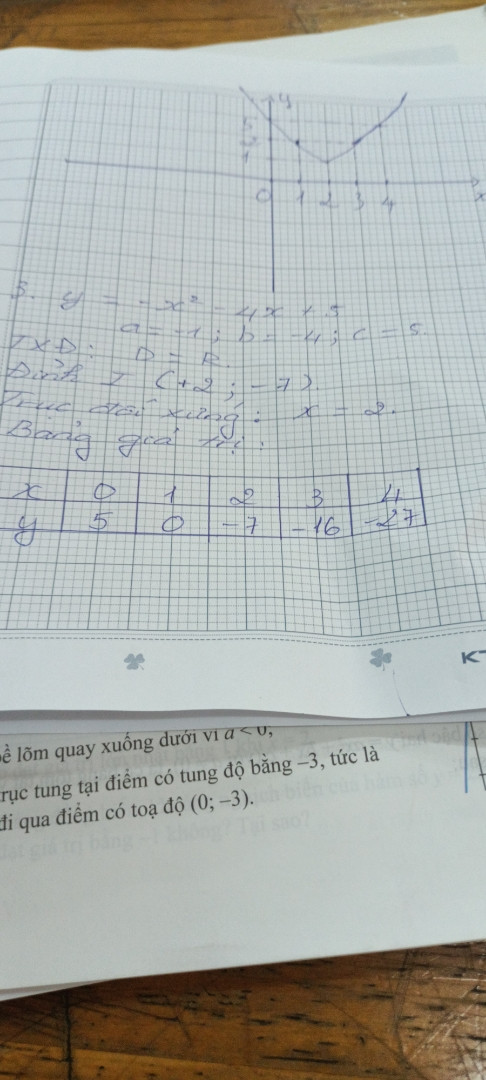 y
5
3
1
0 1 2 3 4 x
3. y = -x² - 4x + 5
a = -1; b = -4; c = 5.
TXD: D = R.
Đỉnh I (+2; -7)
Trục đối xứng: x = 2.
Bảng giá trị:
x 0 1 2 3 4
y 5 0 -7 -16 -27
ề lõm quay xuống dưới vì a < 0,
rục tung tại điểm có tung độ bằng –3, tức là
đi qua điểm có toạ độ (0; –3).
đạt giá trị bằng –1 không? Tại sao?